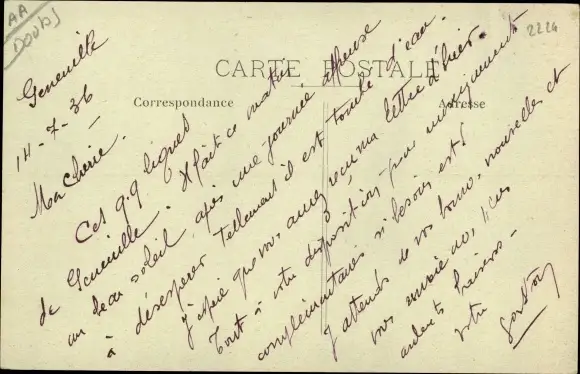 AA
Doubs
2226
CARTE POSTALE
Correspondance
Adresse
Geneuille
14-7-36
Ma Chérie.
Ces qq lignes
de Geneuille. Il fait ce matin
un beau soleil après une journée affreuse
à désespérer tellement il est tombé d'eau.
J'espère que vous aurez reçu ma lettre d'hier.
Tout à votre disposition pour
complémentaires si besoin est!
J'attends de vos bonnes nouvelles et
vous envoie
ardents baisers-
votre
Gaston